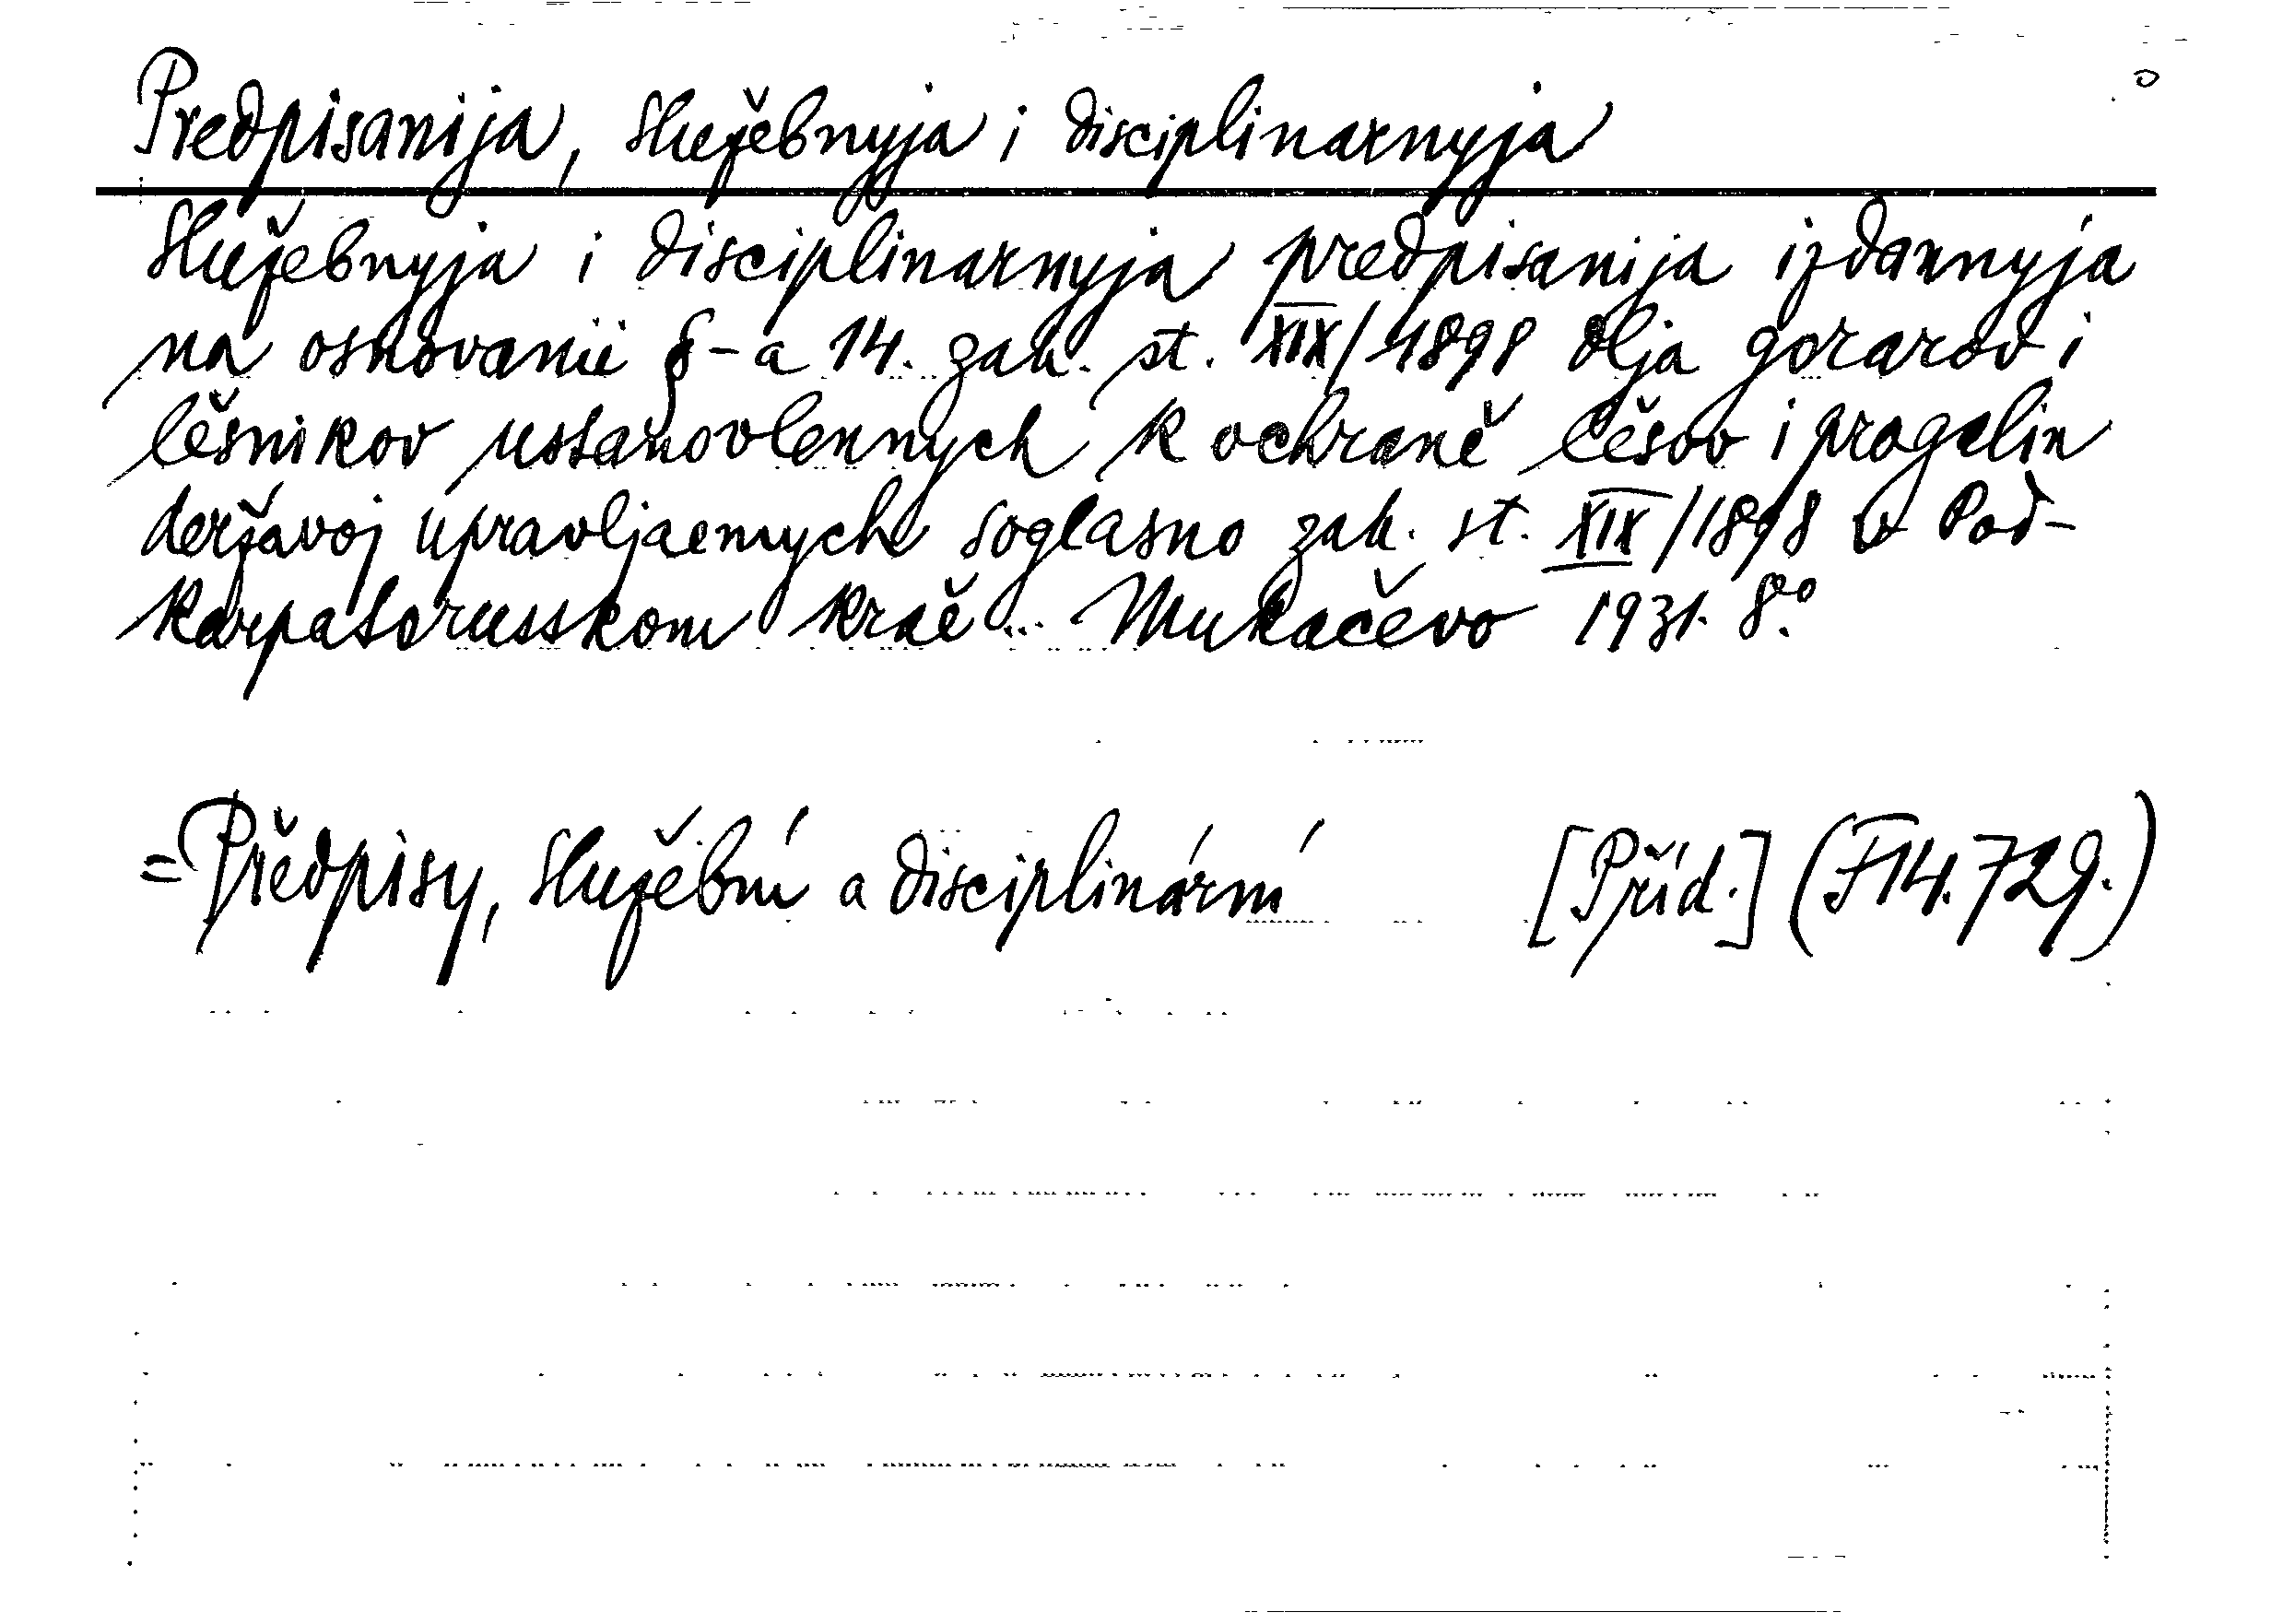 Predpisanija, služebnyja i disciplinarnyja
Služebnyja i disciplinarnyja predpisanija izdannyja
na osnovanii §-a 14. zak. st. XIX/1898 dlja gorarov i
lěsnikov ustanovlennych k ochraně lěsov i progalin
deržavoj upravljaemych soglasno zak. st. XIX/1898 v Pod-
karpatorusskom kraě. Mukačevo 1931. 8°.
=Předpisy, služební a disciplinární [Příd.] (F14.729.)